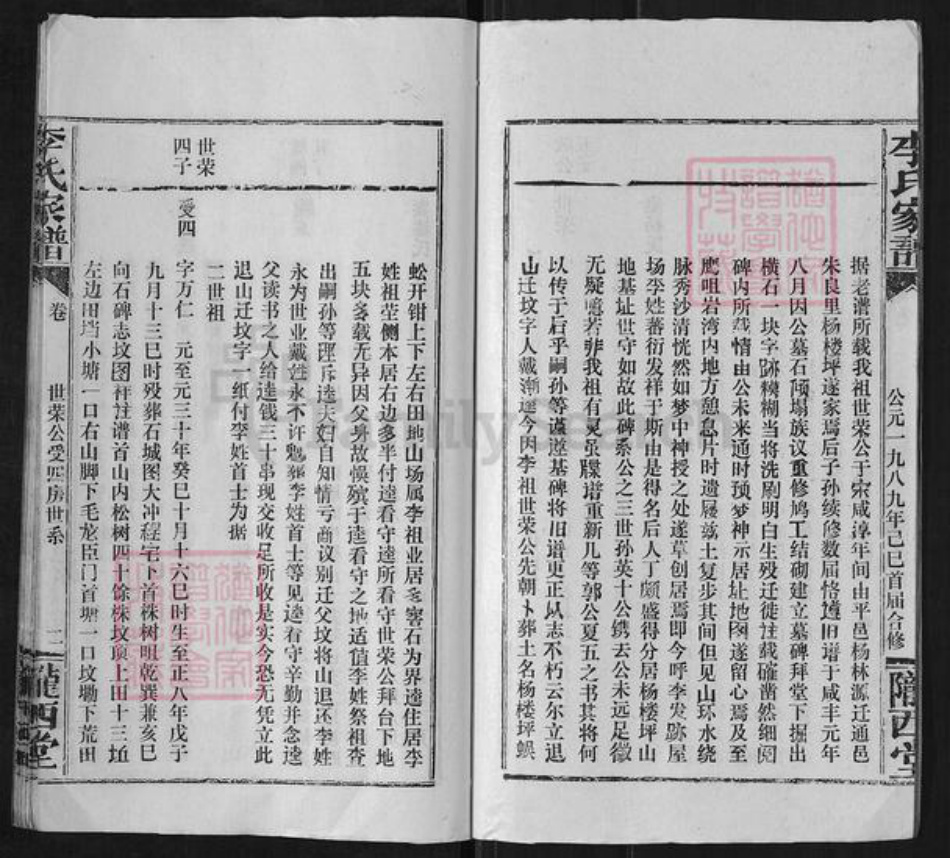 李氏家谱
公元一九八九年己巳首届合修
陇西堂
据老谱所载我祖世荣公于宋咸淳年间由平邑杨林源迁通邑
朱良里杨楼坪遂家焉后子孙续修数届恪遵旧谱于咸丰元年
八月因公墓石倾塌族议重修鸠工结砌建立墓碑拜堂下掘出
横石一块字跡糢糊当将洗刷明白生殁迁徙注载確凿然细阅
碑内所载情由公未来通时预梦神示居址地图遂留心焉及至
鹰咀岩湾内地方憩息片时遗屦荔土复步其间但见山环水绕
脉秀沙清恍然如梦中神授之处遂草创居焉即今呼李发跡屋
场李姓蕃衍发祥于斯由是得名后人丁颇盛得分居杨楼坪山
地基址世守如故此碑系公之三世孙英十公镌去公未远足徵
无疑噫若非我祖有灵虽牒谱重新几等郭公夏五之书其将何
以传于后乎嗣孙等谨遵基碑将旧谱更正以志不朽云尔立退
山迁坟字人戴渐逵今因李祖世荣公先朝卜葬土名杨楼坪蜈
蚣开钳上下左右田地山场属李祖业居窑窖石为界逵住居李
姓祖茔侧本居右边多半付逵看守逵所看守世荣公拜台下地
五块多载无异因父身故悮殡于逵看守之地适值李姓祭祖查
出嗣孙等理斥逵夫妇自知情亏商议别迁父坟将山退还李姓
永为世业戴姓永不许魆葬李姓首士等见逵看守辛勤并念逵
父读书之人给逵钱三十串现交收足所收是实今恐无凭立此
退山迁坟字一纸付李姓首士为据
二世祖
世荣
四子
受四
字万仁 元至元三十年癸巳十月十六巳时生至正八年戊子
九月十三巳时殁葬石城图大冲程宅下首株树咀乾巽兼亥巳
向石碑志坟图祥注谱首山内松树四十馀株坟顶上田十三坵
左边田垱小塘一口右山脚下毛龙臣门首塘一口坟塝下荒田
李氏家谱
卷
世荣公受四房世系
二
陇西堂
FamilySearch